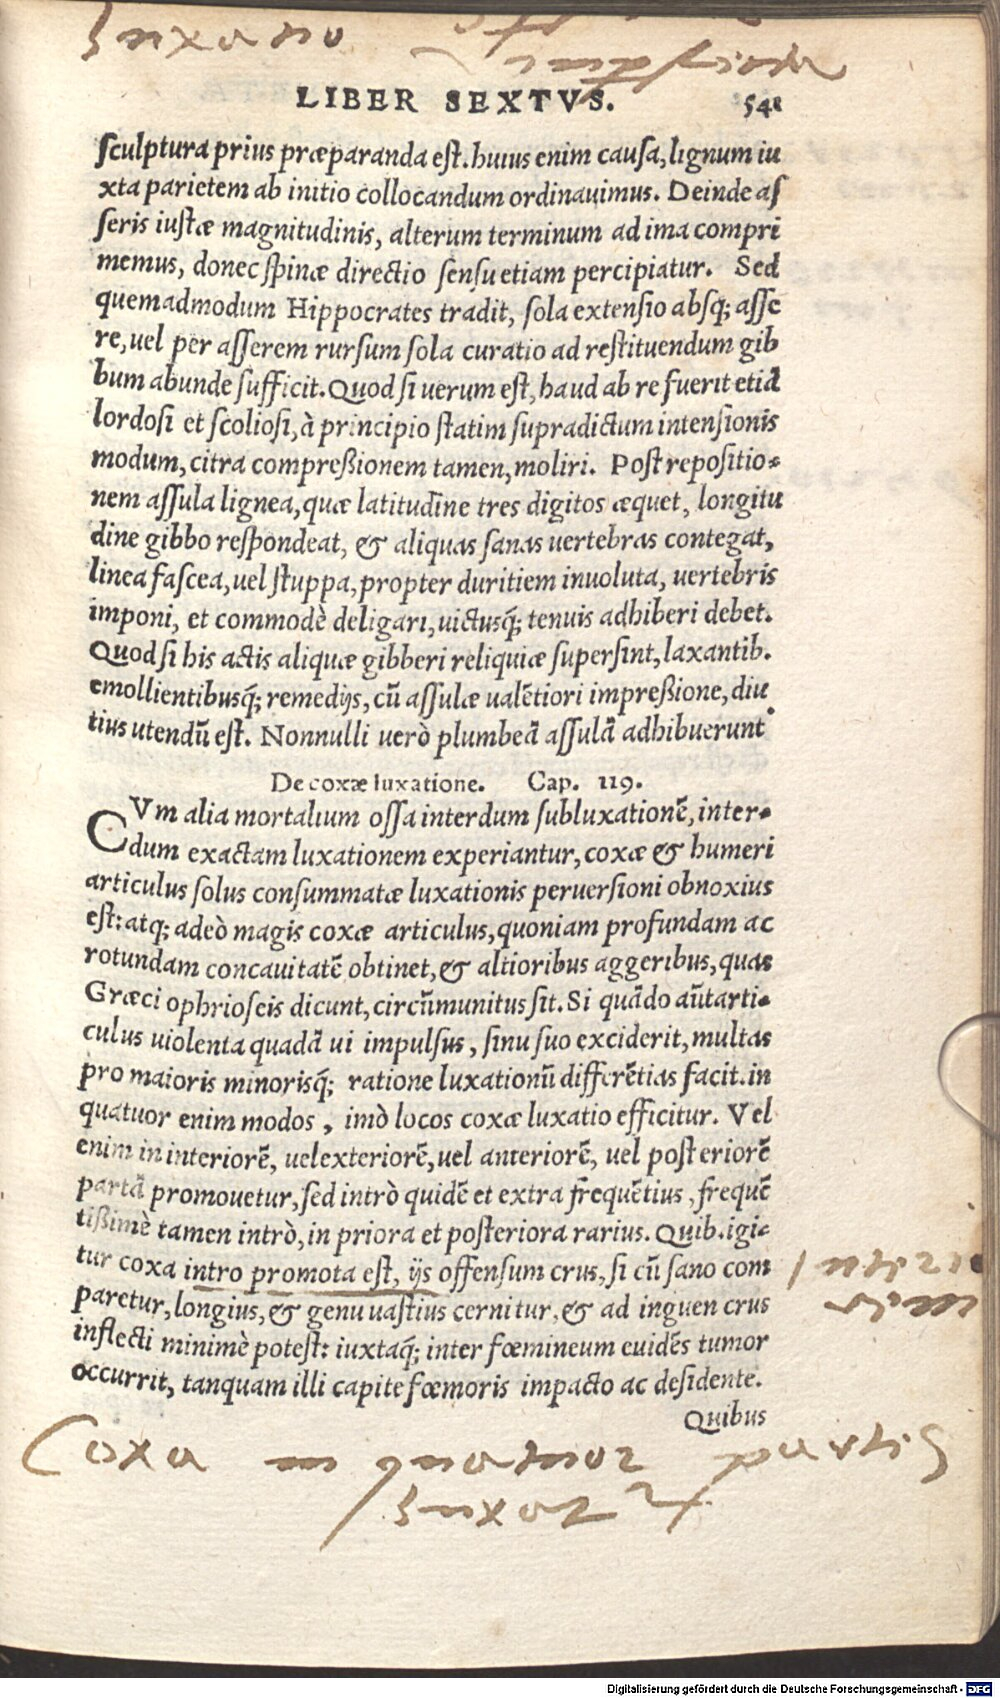 luxatio
LIBER SEXTVS. 541
sculptura prius præparanda est. huius enim causa, lignum iu
xta parietem ab initio collocandum ordinauimus. Deinde as
seris iustæ magnitudinis, alterum terminum ad ima compri
memus, donec spinæ directio sensu etiam percipiatur. Sed
quemadmodum Hippocrates tradit, sola extensio absq; asse
re, uel per asserem rursum sola curatio ad restituendum gib
bum abunde sufficit. Quod si uerum est, haud ab re fuerit etiã
lordosi et scoliosi, à principio statim supradictum intensionis
modum, citra compreßionem tamen, moliri. Post repositio-
nem assula lignea, quæ latitudine tres digitos æquet, longitu
dine gibbo respondeat, & aliquas sanas uertebras contegat,
linea fascea, uel stuppa, propter duritiem inuoluta, uertebris
imponi, et commodè deligari, uictusq́; tenuis adhiberi debet.
Quod si his actis aliquæ gibberi reliquiæ supersint, laxantib.
emollientibusq́; remedijs, cũ assulæ ualẽtiori impreßione, diu
tius utendũ est. Nonnulli uerò plumbeã assulã adhibuerunt.
De coxæ luxatione. Cap. 119.
CVm alia mortalium ossa interdum subluxationẽ, inter-
dum exactam luxationem experiantur, coxæ & humeri
articulus solus consummatæ luxationis peruersioni obnoxius
est: atq; adeò magis coxæ articulus, quoniam profundam ac
rotundam concauitatẽ obtinet, & altioribus aggeribus, quas
Græci ophrioseis dicunt, circũmunitus sit. Si quãdo aũt arti-
culus uiolenta quadã ui impulsus, sinu suo exciderit, multas
pro maioris minorisq́; ratione luxationũ differẽtias facit. in
quatuor enim modos, imò locos coxæ luxatio efficitur. Vel
enim in interiorẽ, uel exteriorẽ, uel anteriorẽ, uel posteriorẽ
partã promouetur, sed intrò quidẽ et extra frequẽtius, frequẽ
tißimè tamen intrò, in priora et posteriora rarius. Quib. igi-
tur coxa intro promota est, ijs offensum crus, si cũ sano com
paretur, longius, & genu uastius cernitur, & ad inguen crus
inflecti minimè potest: iuxtaq́; inter fœmineum euidẽs tumor
occurrit, tanquam illi capite fœmoris impacto ac desidente.
Quibus
Coxa in quatuor partes
luxatur